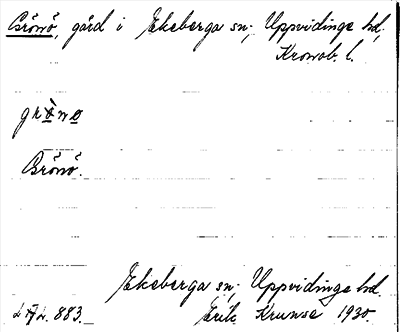 Brönö, gård i Ekeberga sn; Uppvidinge hd,
Kronob. l.
Brönö.
Ekeberga sn; Uppvidinge hd.
883. Erik Krunse 1930.